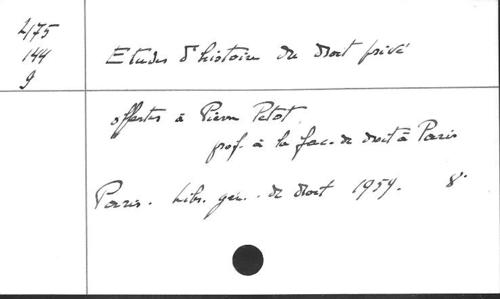 4175
144
9
Etudes d'histoire du droit privé
offertes à Pierre Petot
prof. à la fac. de droit à Paris
Paris. Libr. gén. de droit 1959. 8°